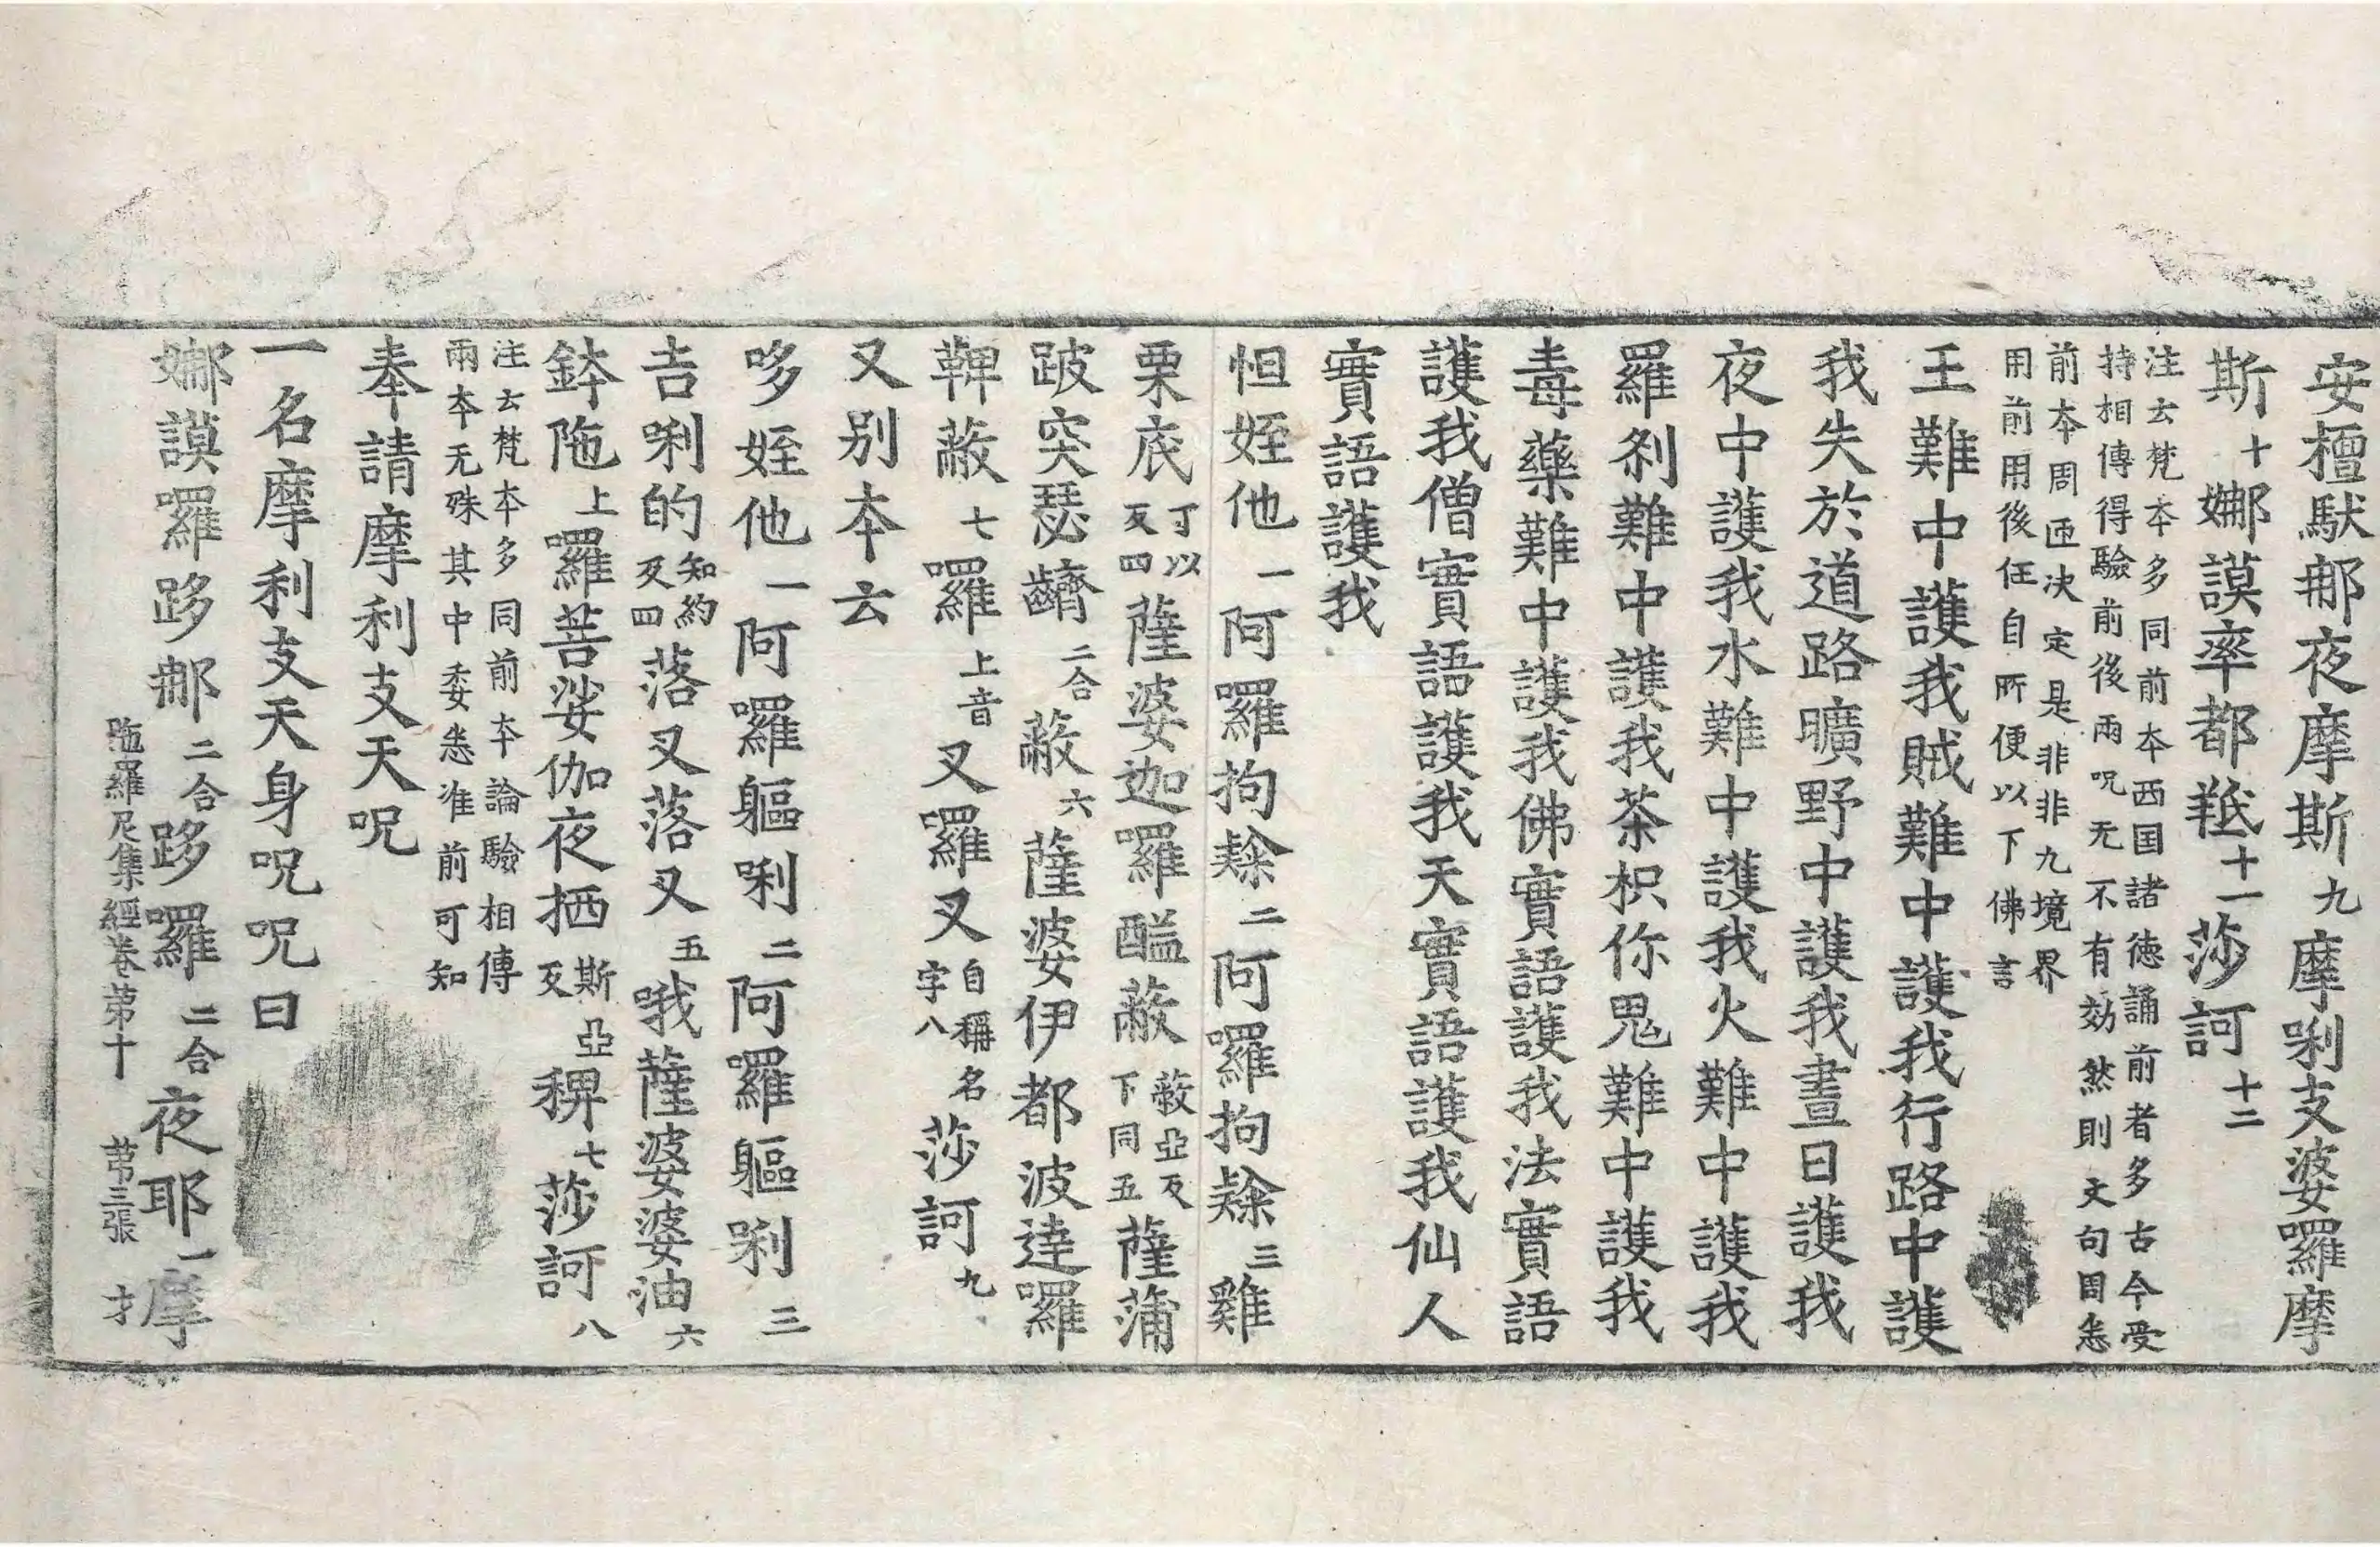 安檀馱那夜摩斯九摩唎支婆羅摩
斯十娜謨率都羝十一莎訶十二
注云梵本多同前本西国諸徳誦前者多古今受
持相傳得驗前後兩呪无不有効然則文句周悉
前本周迊决定是非非九境界
用前用後任自所便以下佛言
王難中護我賊難中護我行路中護
我失於道路曠野中護我晝日護我
夜中護我水難中護我火難中護我
羅剎難中護我荼枳你鬼難中護我
毒藥難中護我佛實語護我法實語
護我僧實語護我天實語護我仙人
實語護我
怛姪他一阿囉拘隸二阿囉拘隸三雞
栗底丁以反四薩婆迦囉醯蔽蔽亞反下同五薩蒲
跛突瑟齹二合蔽六薩婆伊都波達囉
鞞蔽七囉上音叉囉叉自稱名字八莎訶九
又別本云
哆姪他一阿囉軀唎二阿囉軀唎三
吉唎的知約反四落叉落叉五哦薩婆婆油六
鉢陁上囉菩娑伽夜𭉨斯亞反稗七莎訶八
注云梵本多同前本論驗相傳
兩本无殊其中委悉准前可知
奉請摩利支天呪
一名摩利支天身呪呪曰
娜謨囉跢那二合跢囉二合夜耶一摩
陁羅尼集經卷苐十　苐三張　才